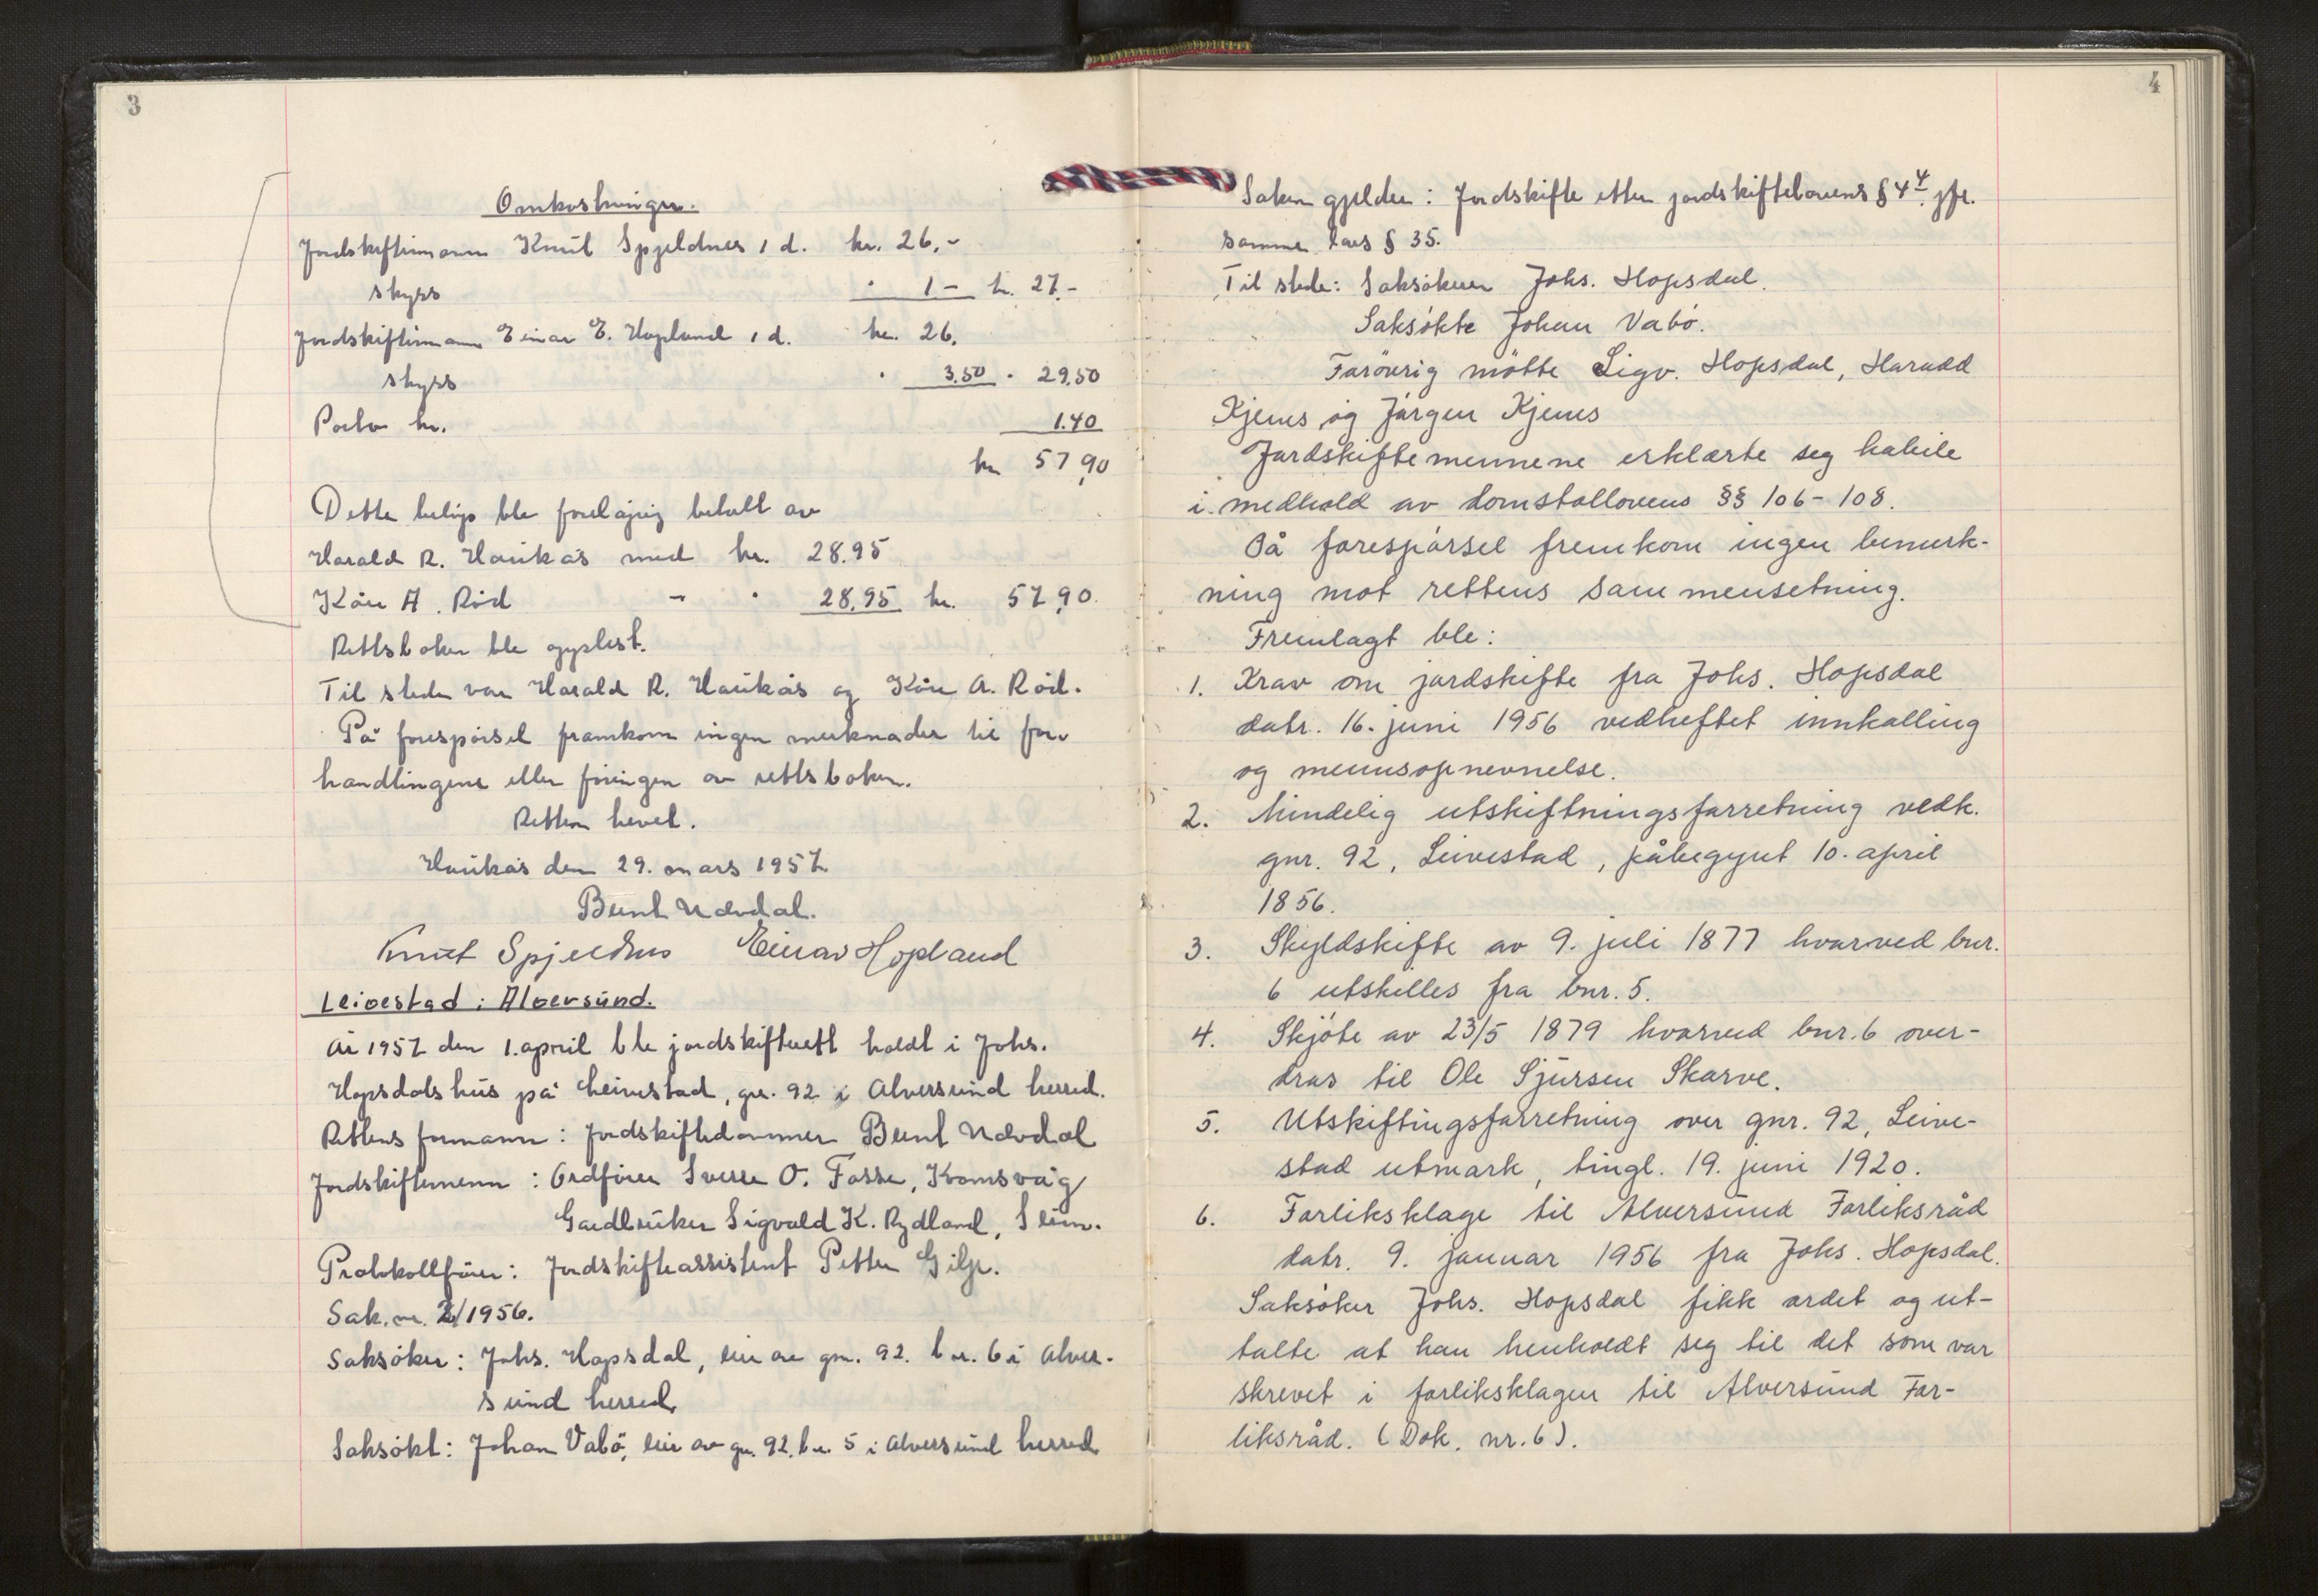 3
Omkostninger.
Jordskiftemann Knut Spjeldnes 1 d. kr. 26,-
skyss " 1- kr. 27,-
Jordskiftemann Einar E. Hopland 1 d. kr. 26.
skyss " 3.50 " 29,50
Porto kr. 1.40
kr 57,90
Dette beløp ble foreløpig betalt av
Harald R. Haukås med kr. 28.95
Kåre A. Röd - " 28,95 kr. 57,90.
Rettsboken ble opplest.
Til stede var Harald R. Haukås og Kåre A. Röd.
På forespörsel framkom ingen merknader til for-
handlingene eller föringen av rettsboken.
Retten hevet.
Haukås den 29. mars 1957
Bernt Nævdal.
Knut Spjeldnes Einar Hopland
Leivestad i Alversund.
År 1957 den 1. april ble jordskifterett holdt i Johs.
Hopsdals hus på Leivestad, gnr. 92 i Alversund herred.
Rettens formann: Jordskiftedommer Bernt Nævdal
Jordskiftemenn: Ordförer Sverre O. Fosse, Kvamsvåg
Gardbruker Sigvald K. Rydland, Seim.
Protokollförer: Jordskifteassistent Petter Gilje.
Sak. nr. 2/1956.
Saksöker: Johs. Hopsdal, eier av gnr. 92. bnr. 6 i Alver-
sund herred.
Saksökt: Johan Vabö, eier av gnr. 92, bnr. 5 i Alversund herred
4
Saken gjelder: Jordskifte etter jordskiftelovens § 4 4. jfr.
samme lovs § 35.
Til stede: Saksökeren Johs. Hopsdal.
Saksökte Johan Vabö.
Forövrig mötte Sigv. Hopsdal, Harald
Kjenes og Jörgen Kjenes
Jordskiftemennene erklærte seg habile
i medhold av domstollovens §§ 106-108.
På forespörsel fremkom ingen bemerk-
ning mot rettens sammensetning.
Fremlagt ble:
1. Krav om jordskifte fra Johs. Hopsdal
datr. 16. juni 1956 vedheftet innkalling
og mennsopnevnelse.
2. Mindelig utskiftningsforretning vedk.
gnr. 92, Leivestad, påbegynt 10. april
1856.
3. Skyldskifte av 9. juli 1877 hvorved bnr.
6 utskilles fra bnr. 5.
4. Skjöte av 23/5 1879 hvorved bnr. 6 over-
dras til Ole Sjursen Skarve.
5. Utskiftingsforretning over gnr. 92, Leive-
stad utmark, tingl. 19. juni 1920.
6. Forliksklage til Alversund Forliksråd
datr. 9. januar 1956 fra Johs. Hopsdal.
Saksöker Johs. Hopsdal fikk ordet og ut-
talte at han henholdt seg til det som var
skrevet i forliksklagen til Alversund For-
liksråd. (Dok. nr. 6).